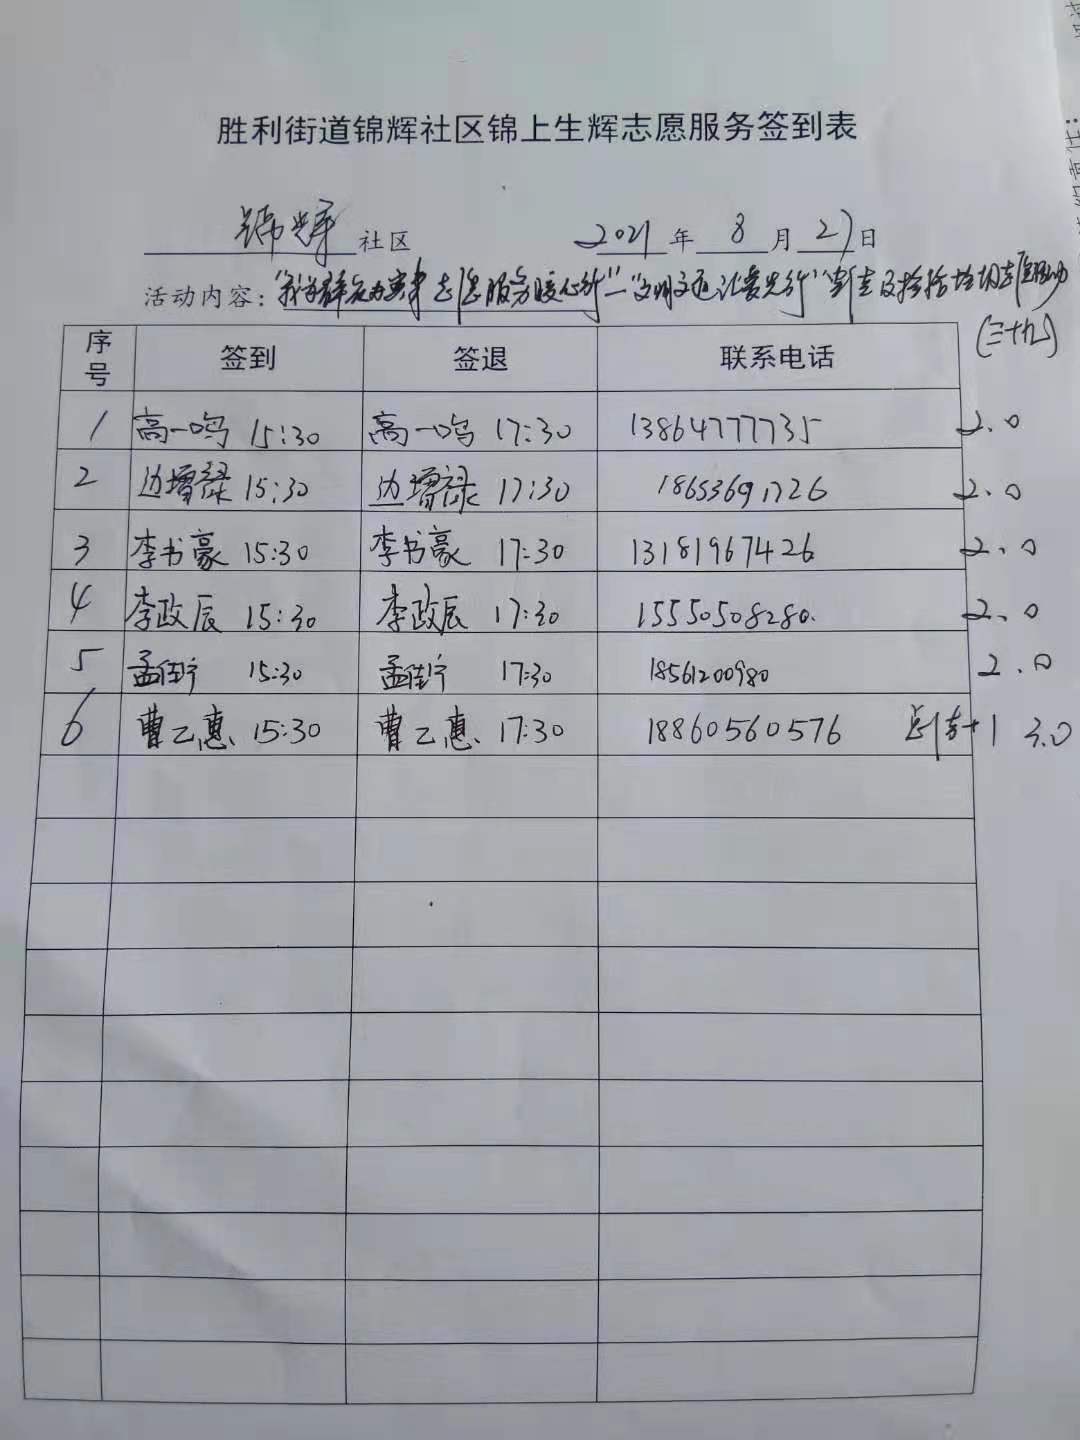 胜利街道锦辉社区锦上生辉志愿服务签到表
锦辉 社区 2021 年 8 月 27 日
活动内容：“我为群众办实事 志愿服务暖心行”—“文明交通 让爱先行”宣传及捡拾垃圾志愿活动
(三十九)
序号 签到 签退 联系电话
1 高一鸣 15:30 高一鸣 17:30 13864777735 2.0
2 边增禄 15:30 边增禄 17:30 18653691726 2.0
3 李书豪 15:30 李书豪 17:30 13181967426 2.0
4 李政辰 15:30 李政辰 17:30 15550508280. 2.0
5 孟佳宁 15:30 孟佳宁 17:30 18561200980 2.0
6 曹乙惠 15:30 曹乙惠 17:30 18860560576 +1 3.0